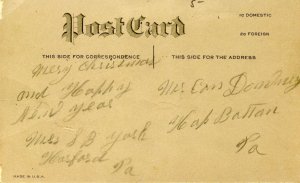 5-
Post Card
1¢ DOMESTIC
2¢ FOREIGN
THIS SIDE FOR CORRESPONDENCE
THIS SIDE FOR THE ADDRESS
Mery Christmas
and Happy
New Year
Mrs S B York
Harford
Pa
Mrs Downey
Hop Bottom
Pa
MADE IN U.S.A.